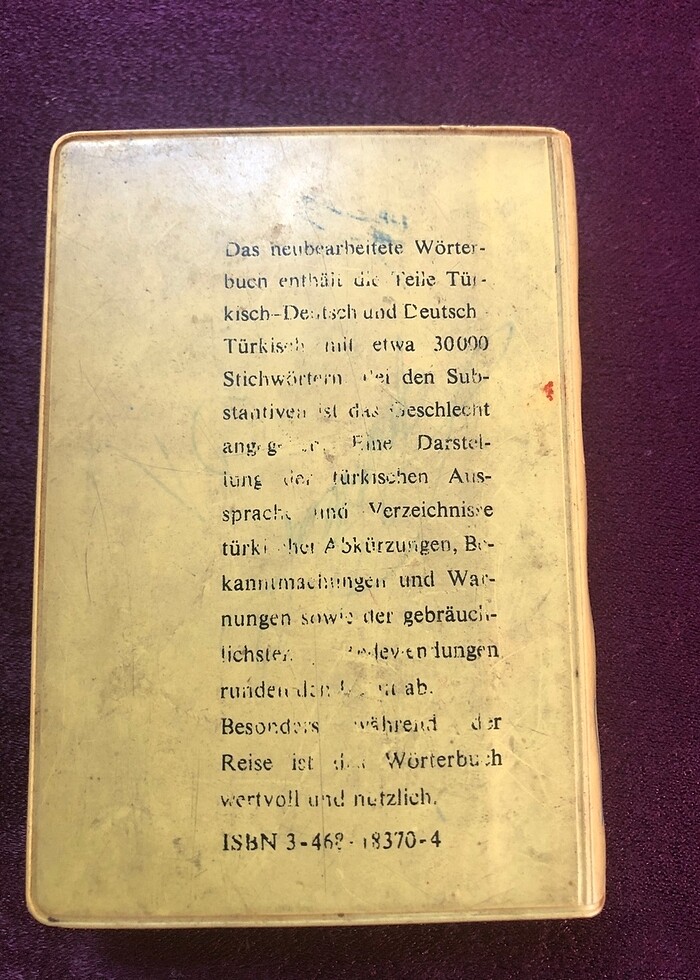 Das neubearbeitete Wörter-
buch enthält die Teile Tür-
kisch-Deutsch und Deutsch
Türkisch mit etwa 30000
Stichwörtern. Bei den Sub-
stantiven ist das Geschlecht
angegeben. Eine Darstel-
lung der türkischen Aus-
sprache und Verzeichnisse
türkischer Abkürzungen, Be-
kanntmachungen und War-
nungen sowie der gebräuch-
lichsten Redewendungen
runden den ab.
Besonders während der
Reise ist das Wörterbuch
wertvoll und nützlich.
ISBN 3-468-18370-4